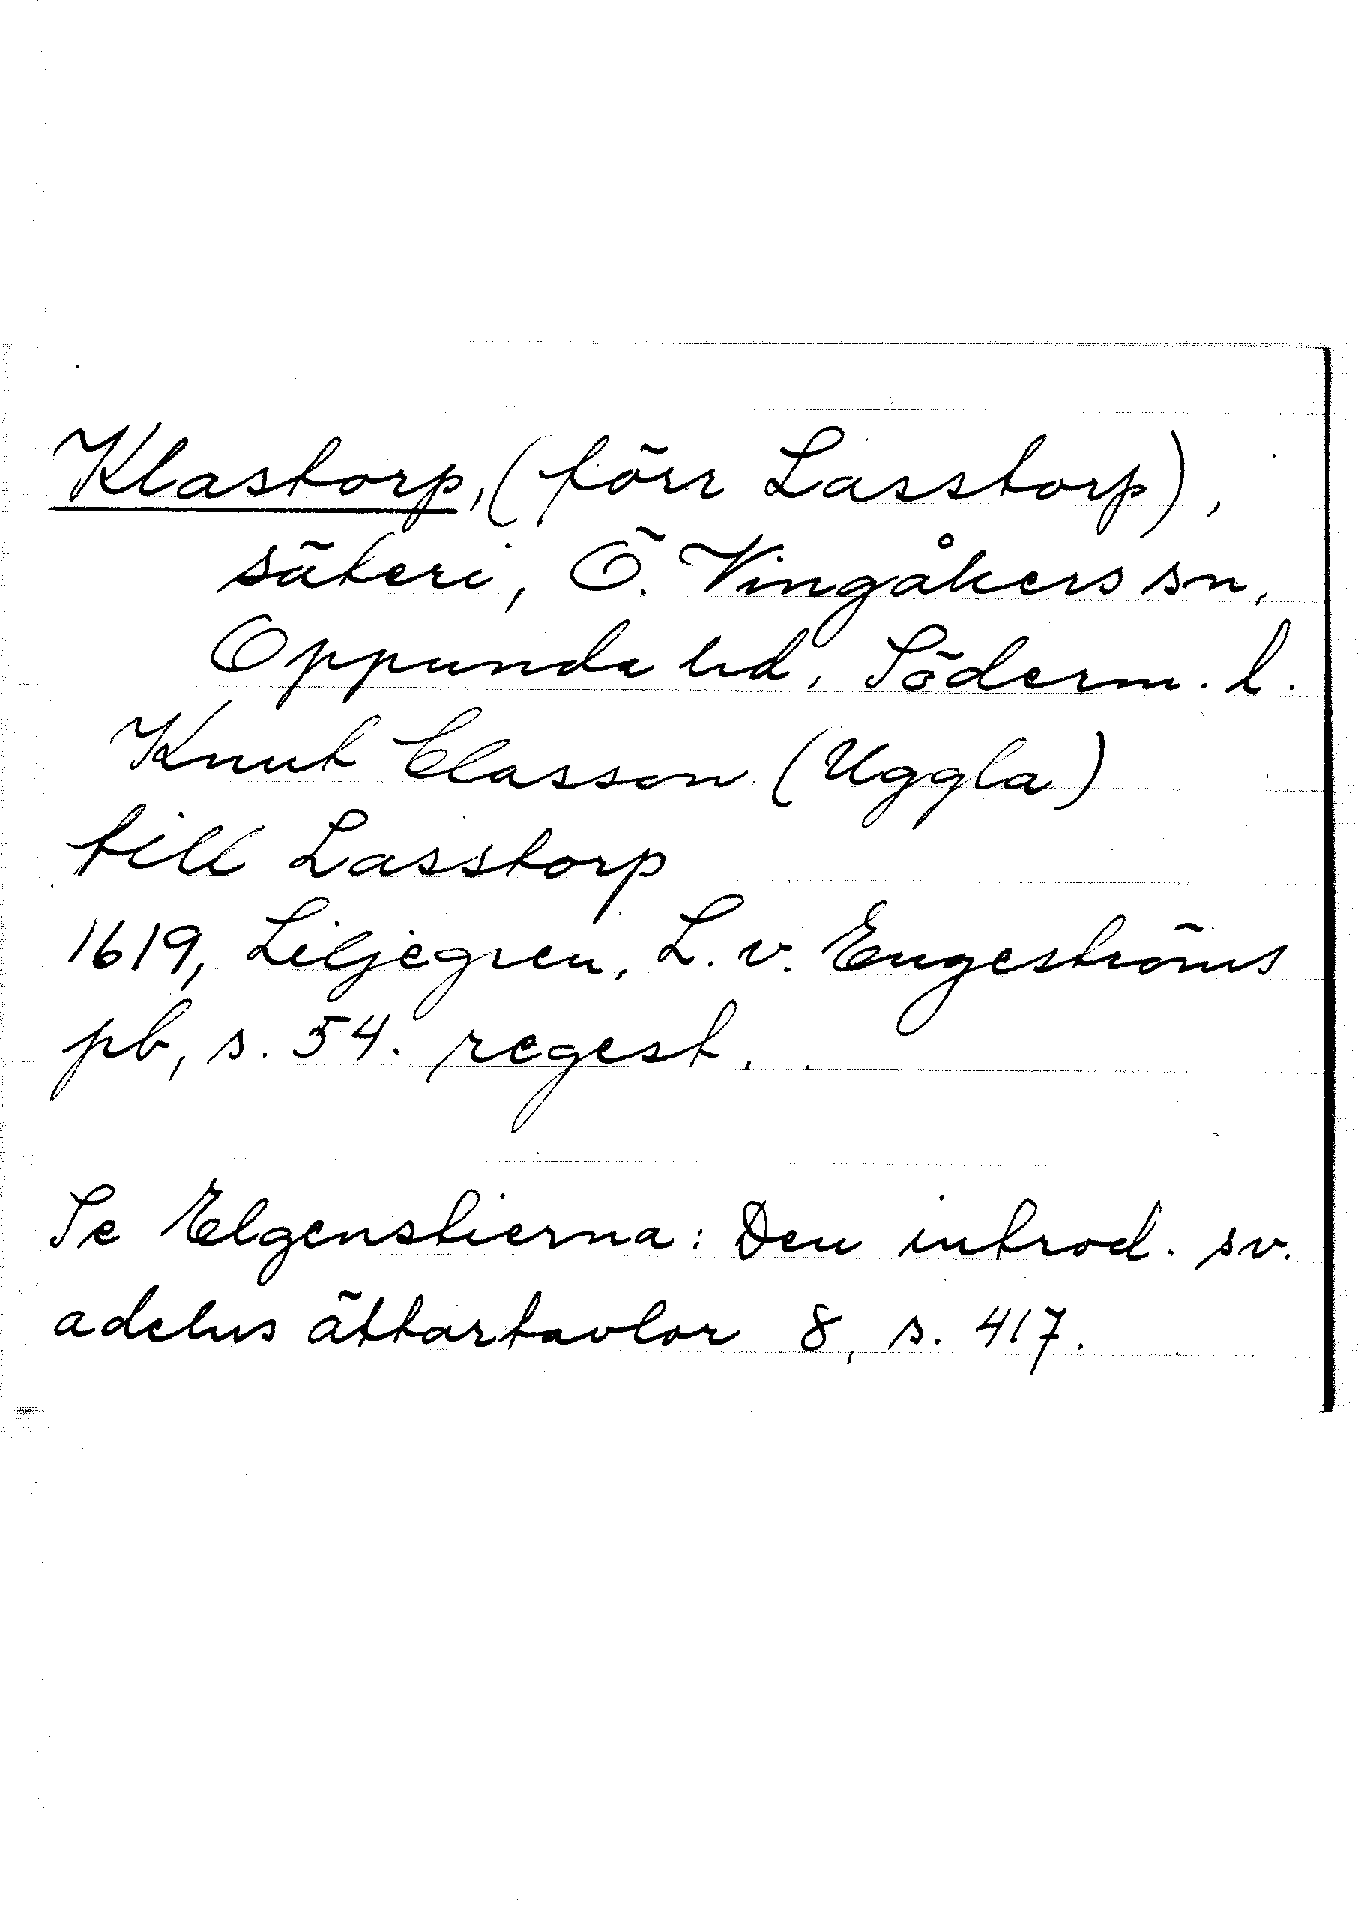 Klastorp, (förr Lasstorp),
säteri, Ö. Vingåkers sn,
Oppunda hd, Söderm. l.
Knut Classon (Uggla)
till Lasstorp
1619, Liljegren, L. v. Engeströms
pb, s. 54. regest.
Se Elgenstierna: Den introd. sv.
adelns ättartavlor 8, s. 417.